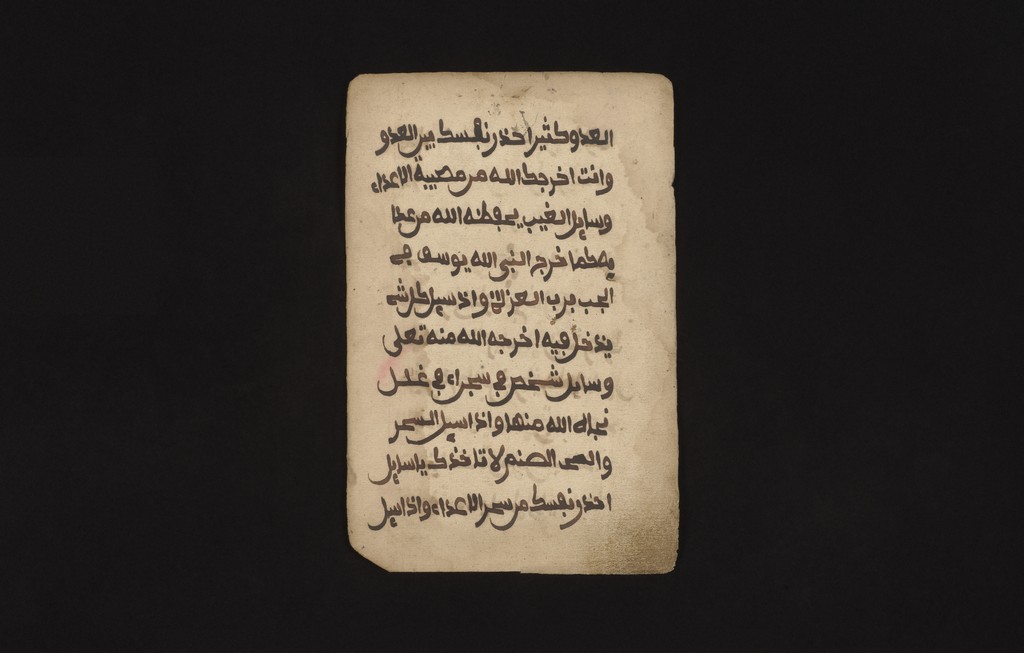 العدو كثير احذر نفسك بين العدو
وانت اخرجك الله من مصيبة الاعداء
وسايل الغيب يحفظه الله من عذا
كما خرج النبي الله يوسف في
الجب برب العزلة واذ سيل كل شي
يدخل فيه اخرجه الله منه تعلى
وسايل شخص في سجراء في غلل
نجاه الله منها واذا سيل السحر
والصم الصنم لا تاخذك يا سايل
احذر نفسك من سحر الاعداء واذا سيل